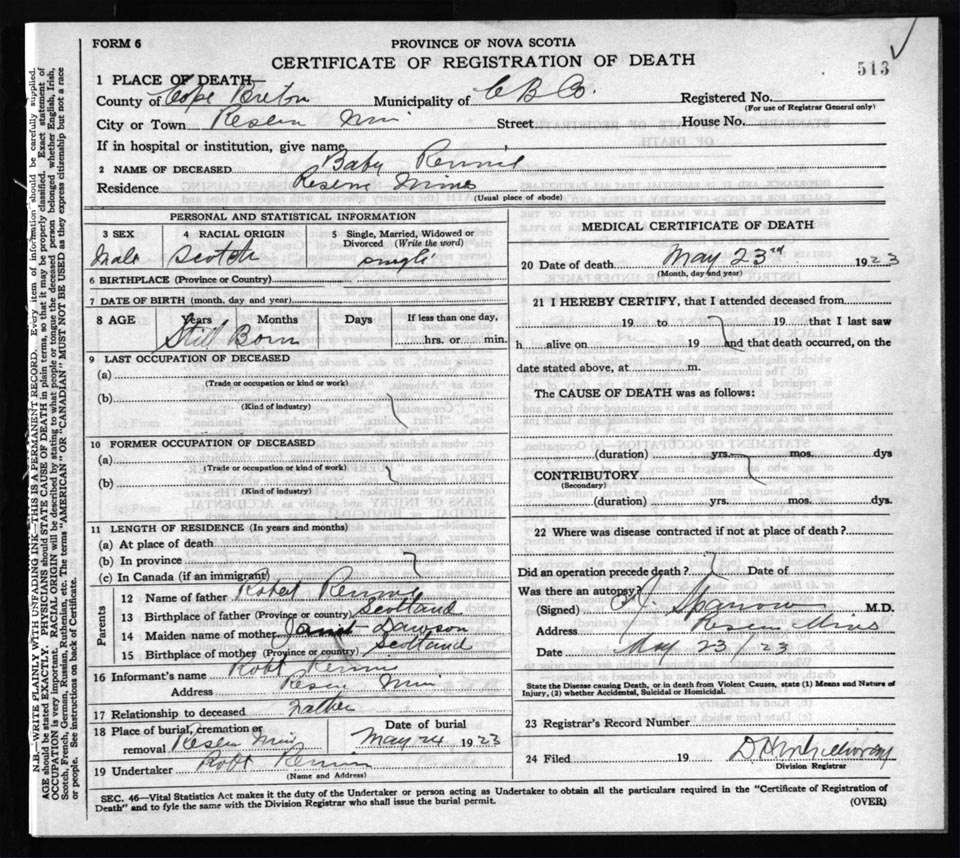 FORM 6
PROVINCE OF NOVA SCOTIA
CERTIFICATE OF REGISTRATION OF DEATH
513
1 PLACE OF DEATH
County of Cape Breton Municipality of C B Co. Registered No.
(For use of Registrar General only)
City or Town Street House No.
If in hospital or institution, give name
2 NAME OF DECEASED Baby Rennie
Residence Reserve Mines
(Usual place of abode)
PERSONAL AND STATISTICAL INFORMATION
3 SEX 4 RACIAL ORIGIN 5 Single, Married, Widowed or Divorced (Write the word)
Male Scotch single
6 BIRTHPLACE (Province or Country)
7 DATE OF BIRTH (month, day and year)
8 AGE Years Months Days If less than one day,
Still Born hrs. or min.
9 LAST OCCUPATION OF DECEASED
(a)
(Trade or occupation or kind or work)
(b)
(Kind of industry)
10 FORMER OCCUPATION OF DECEASED
(a)
(Trade or occupation or kind of work)
(b)
(Kind of industry)
11 LENGTH OF RESIDENCE (In years and months)
(a) At place of death
(b) In province
(c) In Canada (if an immigrant)
Parents
12 Name of father Robert Rennie
13 Birthplace of father (Province or country) Scotland
14 Maiden name of mother Dawson
15 Birthplace of mother (Province or country) Scotland
16 Informant's name Robt Rennie
Address
17 Relationship to deceased Father
18 Place of burial, cremation or removal
Date of burial
May 24 1923
19 Undertaker Robt Rennie
(Name and Address)
MEDICAL CERTIFICATE OF DEATH
20 Date of death May 23rd 1923
(Month, day and year)
21 I HEREBY CERTIFY, that I attended deceased from
19 to 19 that I last saw
h alive on 19 and that death occurred, on the
date stated above, at m.
The CAUSE OF DEATH was as follows:
(duration) yrs. mos. dys
CONTRIBUTORY
(Secondary)
(duration) yrs. mos. dys.
22 Where was disease contracted if not at place of death?
Did an operation precede death? Date of
Was there an autopsy?
(Signed) Sparrow M.D.
Address
Date May 23/23
State the Disease causing Death, or in death from Violent Causes, state (1) Means and Nature of
Injury, (2) whether Accidental, Suicidal or Homicidal.
23 Registrar's Record Number
24 Filed 19
Division Registrar
SEC. 46—Vital Statistics Act makes it duty of the Undertaker or person acting as Undertaker to obtain all the particulars required in the "Certificate of Registration of
Death" and to fyle the same with the Division Registrar who shall issue the burial permit.
(OVER)
N.B.—WRITE PLAINLY WITH UNFADING INK—THIS IS A PERMANENT RECORD. Every item of information should be carefully supplied.
AGE should be stated EXACTLY. PHYSICIANS should STATE CAUSE OF DEATH in plain terms, so that it may be properly classified. Exact statement of
OCCUPATION is very important. RACIAL ORIGIN will be described by stating to what people or tongue the deceased person belonged whether English, Irish,
Scotch, French, German, Russian, Ruthenian, etc. The terms "AMERICAN" OR "CANADIAN" MUST NOT BE USED as they express citizenship but not a race
or people. See instructions on back of Certificate.